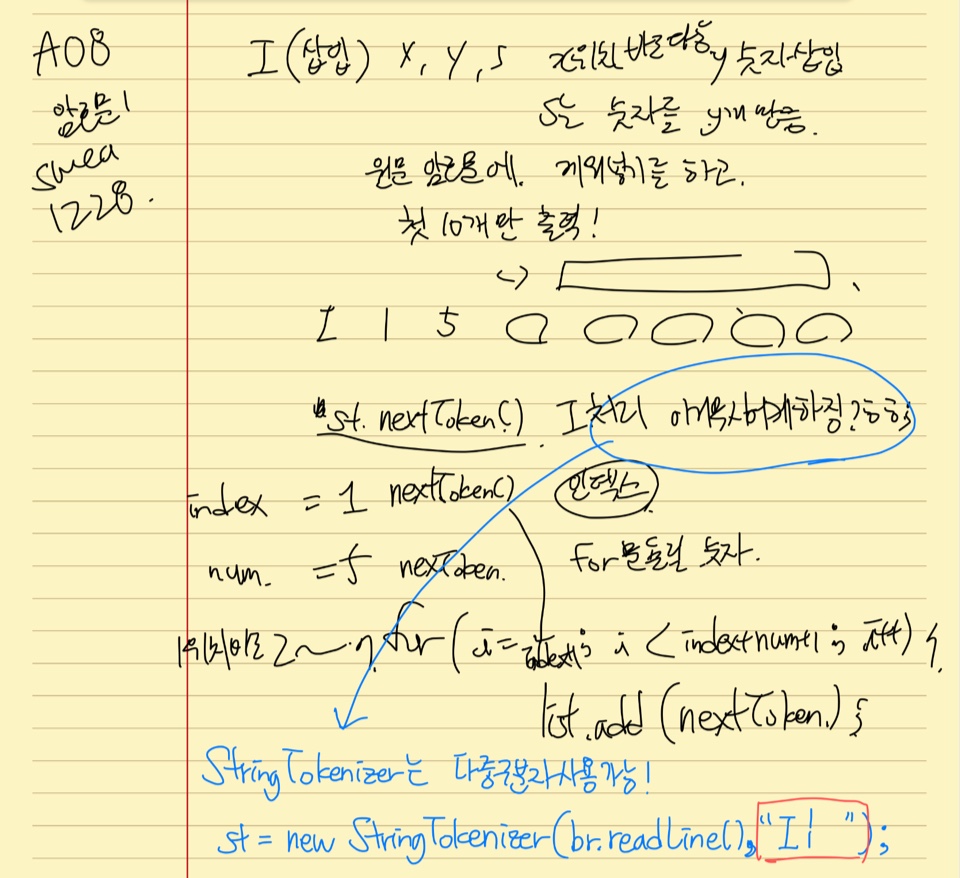 A08
암호문1
swea
1228.
I (삽입) x, y, s x위치 바로 다음 y 숫자 삽입
s는 숫자를 y개 만큼.
원문 암호문에. 끼워넣기를 하고.
첫 10개만 출력!
I 1 5
st. nextToken(). I처리
index = 1 nextToken() 인덱스
num. = 5 nexToken. for문돌릴 숫자.
for ( i = index+1; i < index+num+1; i++) {
list.add (nextToken.) }
StringTokenizer는 다중구분자사용가능!
st = new StringTokenizer(br.readLine(), "I| ");